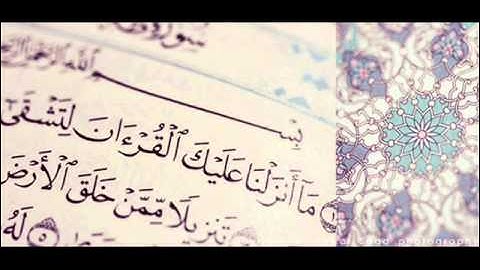 سورة
بِسْمِ ٱللَّهِ ٱلرَّحْمَٰنِ ٱلرَّحِيمِ
مَآ أَنزَلْنَا عَلَيْكَ ٱلْقُرْءَانَ لِتَشْقَىٰٓ
تَنزِيلًا مِّمَّنْ خَلَقَ ٱلْأَرْضَ
٥ لَهُۥ
photography